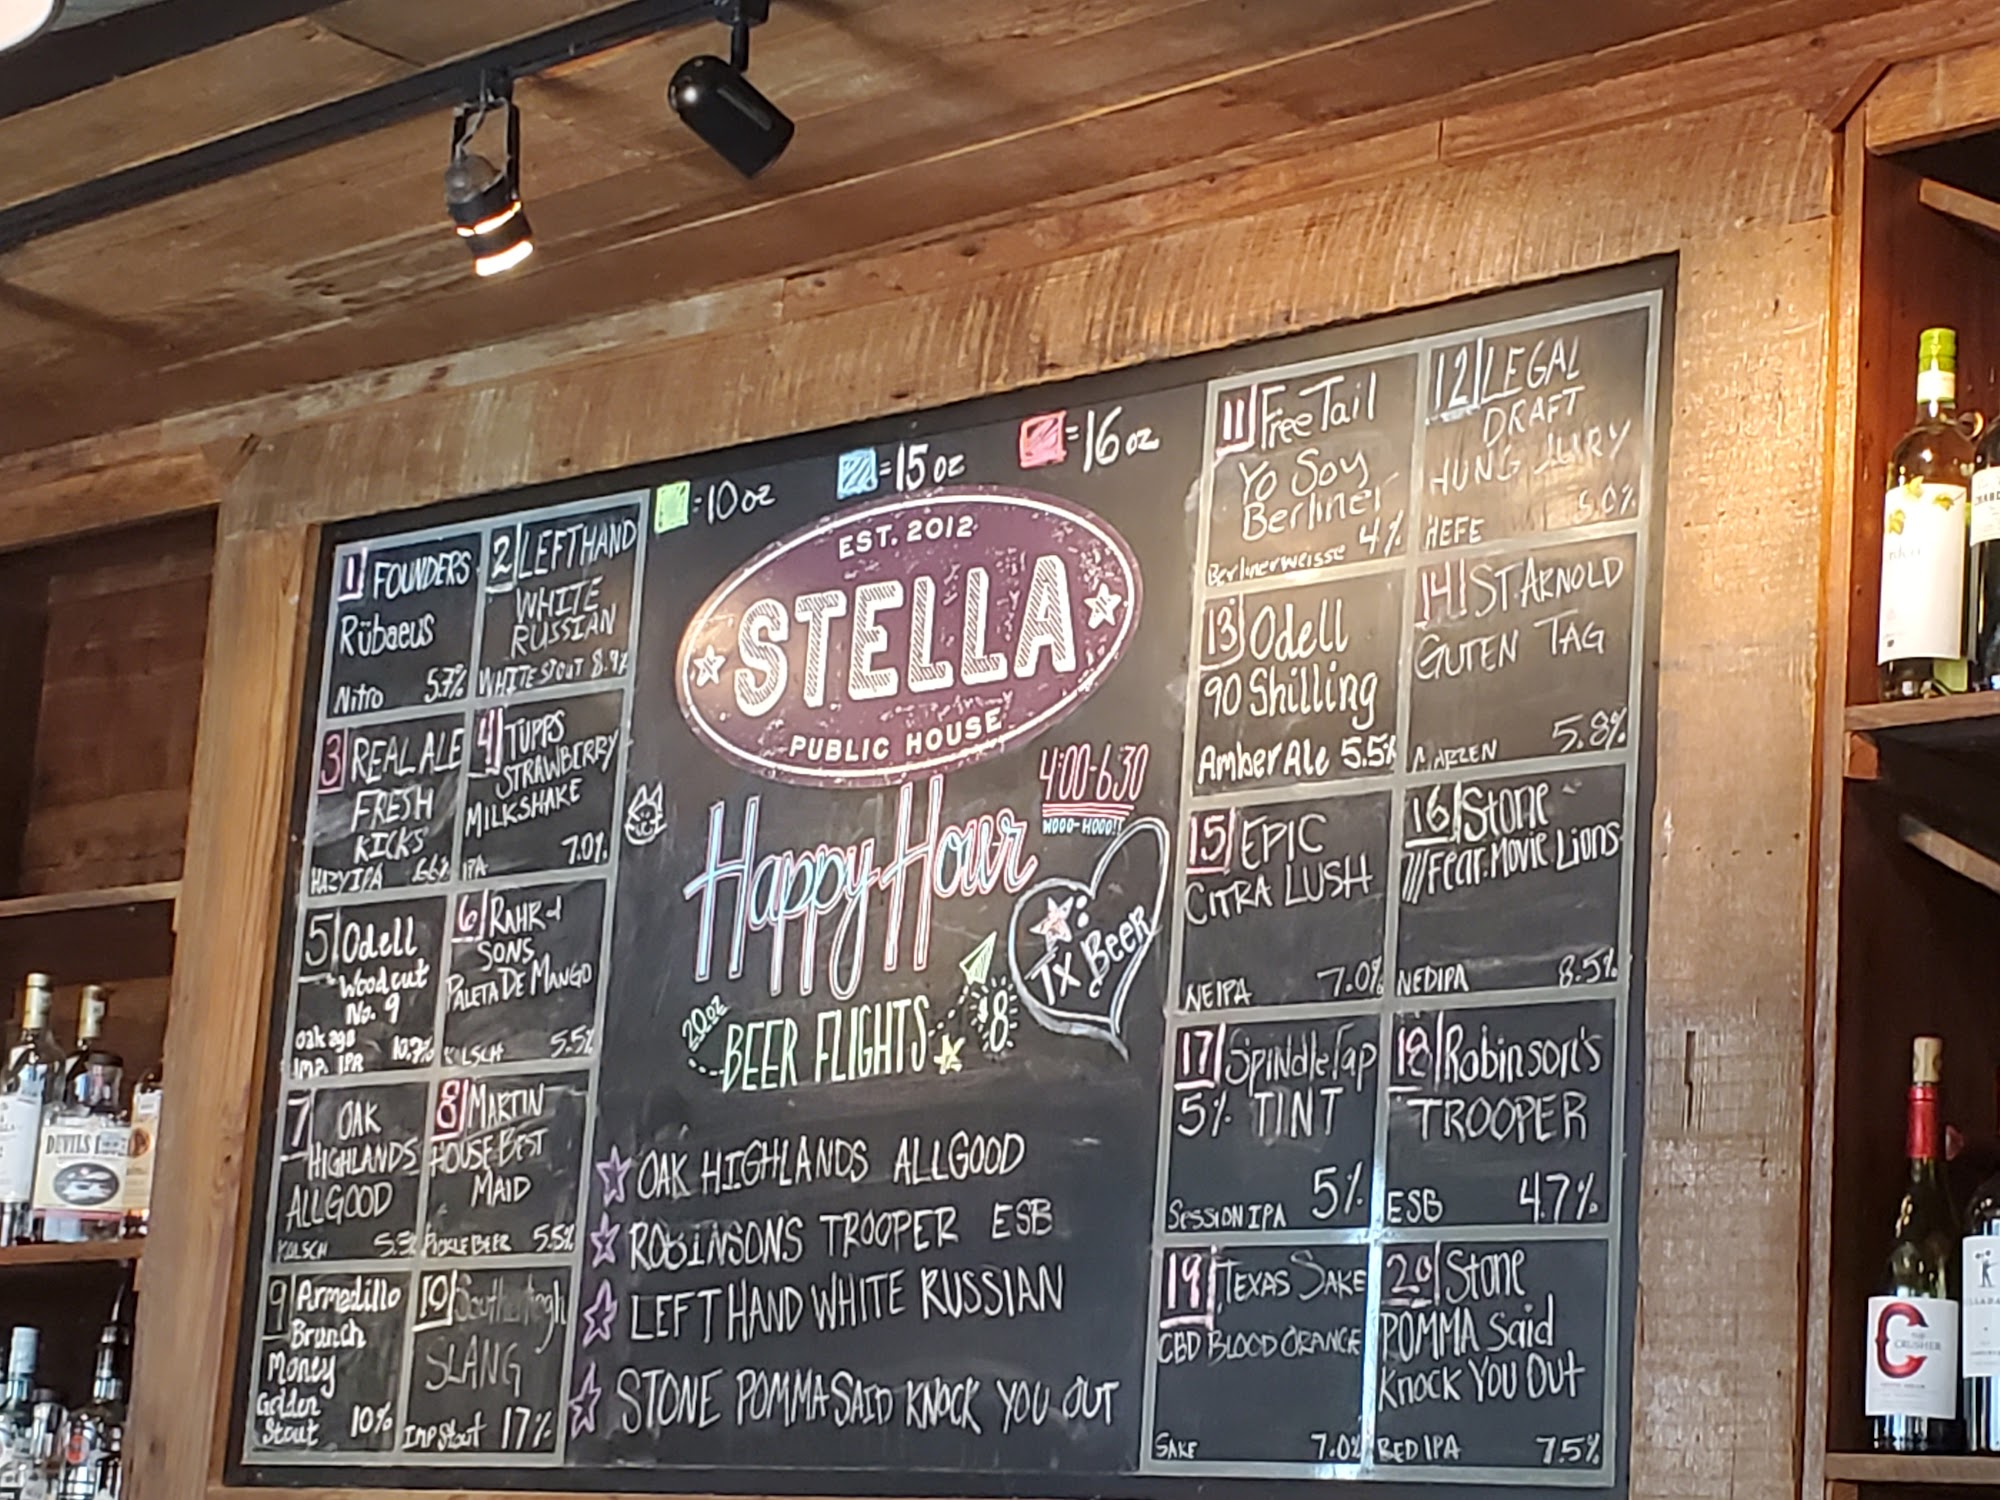 = 10 oz
= 15 oz
= 16 oz
EST. 2012
STELLA
PUBLIC HOUSE
4:00-6:30
WOOO-HOOO!!
Happy Hour
TX Beer
20oz
BEER FLIGHTS
$8
OAK HIGHLANDS ALLGOOD
ROBINSONS TROOPER ESB
LEFT HAND WHITE RUSSIAN
STONE POMMA SAID KNOCK YOU OUT
1 FOUNDERS
Rübaeus
Nitro 5.7%
2 LEFTHAND
WHITE
RUSSIAN
WHITE STOUT
3 REAL ALE
FRESH
KICKS
HAZY IPA
4 TUPPS
STRAWBERRY
MILKSHAKE
IPA 7.0%
5 Odell
Woodcut
No. 9
oak age
IMP. IPA 10.7%
6 RAHR &
SONS
PALETA DE MANGO
KOLSCH 5.5%
7 OAK
HIGHLANDS
ALLGOOD
KOLSCH
8 MARTIN
HOUSE BEST
MAID
PICKLE BEER 5.5%
9 Armadillo
Brunch
Money
Golden
Stout 10%
10
SLANG
Imp Stout 17%
11 Free Tail
Yo Soy
Berliner
Berlinerweisse 4%
12 LEGAL
DRAFT
HUNG JURY
HEFE 5.0%
13 Odell
90 Shilling
Amber Ale 5.5%
14 ST. ARNOLD
GUTEN TAG
5.8%
15 EPIC
CITRA LUSH
NEIPA 7.0%
16 Stone
///Fear.Movie Lions
NEDIPA 8.5%
17 SpindleTap
5% TINT
SESSION IPA 5%
18 Robinson's
TROOPER
ESB 4.7%
19 TEXAS SAKE
CBD BLOOD ORANGE
SAKE 7.0%
20 Stone
POMMA Said
Knock YOU OUT
RED IPA 7.5%
DEVILS
C
THE
CRUSHER